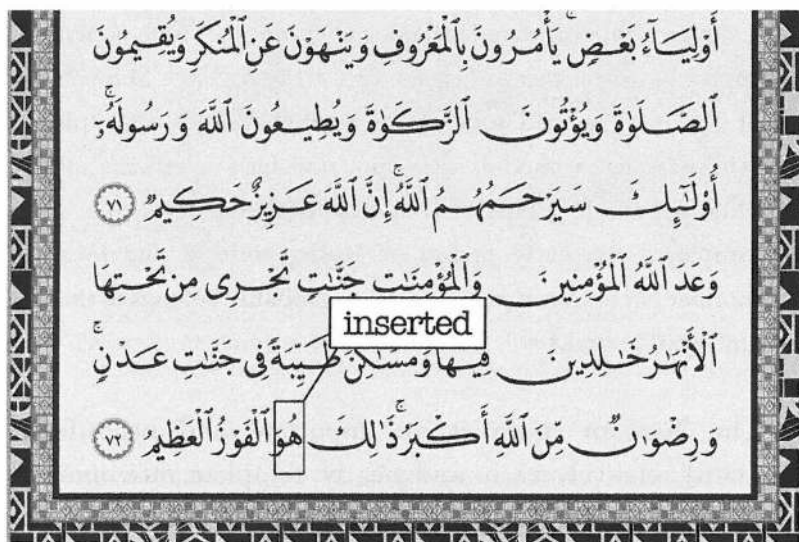 أَوْلِيَآءُ بَعْضٍ ۚ يَأْمُرُونَ بِٱلْمَعْرُوفِ وَيَنْهَوْنَ عَنِ ٱلْمُنكَرِ وَيُقِيمُونَ
ٱلصَّلَوٰةَ وَيُؤْتُونَ ٱلزَّكَوٰةَ وَيُطِيعُونَ ٱللَّهَ وَرَسُولَهُۥٓ ۚ
أُو۟لَـٰٓئِكَ سَيَرْحَمُهُمُ ٱللَّهُ ۗ إِنَّ ٱللَّهَ عَزِيزٌ حَكِيمٌ ٧١
وَعَدَ ٱللَّهُ ٱلْمُؤْمِنِينَ وَٱلْمُؤْمِنَـٰتِ جَنَّـٰتٍ تَجْرِى مِن تَحْتِهَا
inserted
ٱلْأَنْهَـٰرُ خَـٰلِدِينَ فِيهَا وَمَسَـٰكِنَ طَيِّبَةً فِى جَنَّـٰتِ عَدْنٍ ۚ
وَرِضْوَٰنٌ مِّنَ ٱللَّهِ أَكْبَرُ ۚ ذَٰلِكَ هُوَ ٱلْفَوْزُ ٱلْعَظِيمُ ٧٢